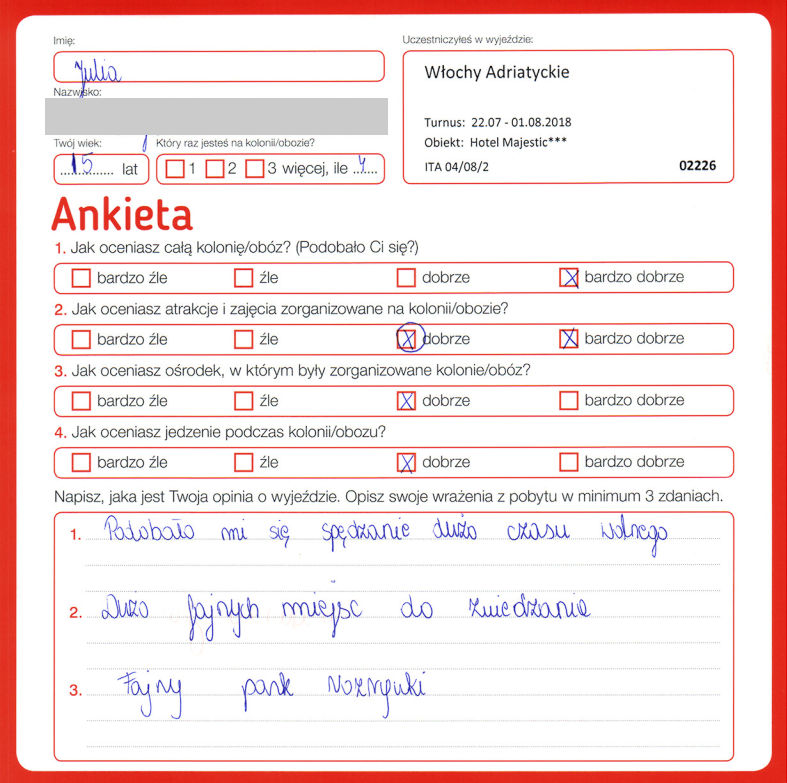 Imię:
Julia
Nazwisko:
Twój wiek:
15 lat
Który raz jesteś na kolonii/obozie?
1 2 3 więcej, ile 4
Uczestniczyłeś w wyjeździe:
Włochy Adriatyckie
Turnus: 22.07 - 01.08.2018
Obiekt: Hotel Majestic***
ITA 04/08/2 02226
Ankieta
1. Jak oceniasz całą kolonię/obóz? (Podobało Ci się?)
bardzo źle źle dobrze bardzo dobrze
2. Jak oceniasz atrakcje i zajęcia zorganizowane na kolonii/obozie?
bardzo źle źle dobrze bardzo dobrze
3. Jak oceniasz ośrodek, w którym były zorganizowane kolonie/obóz?
bardzo źle źle dobrze bardzo dobrze
4. Jak oceniasz jedzenie podczas kolonii/obozu?
bardzo źle źle dobrze bardzo dobrze
Napisz, jaka jest Twoja opinia o wyjeździe. Opisz swoje wrażenia z pobytu w minimum 3 zdaniach.
1. Podobało mi się spędzanie dużo czasu wolnego
2. Dużo fajnych miejsc do zwiedzania
3. Fajny park rozrywki